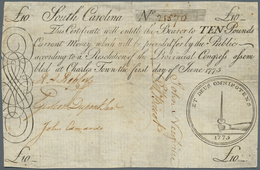 £10 South Carolina No. 21570 £10
This Certificate will entitle the Bearer to TEN Pounds
Current Money which will be provided for by the Public
according to a Resolution of the Provincial Congress assem-
bled at Charles Town the first day of June 1775
ET DEUS OMNIPOTENS
1775
John Edwards
£10 £10